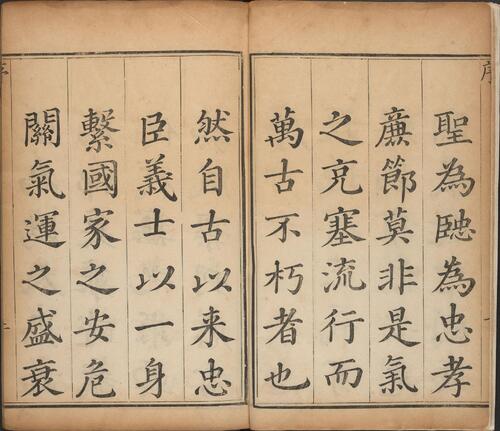 聖為䝨為忠孝
亷節莫非是氣
之充塞流行而
萬古不朽者也
然自古以来忠
臣義士以一身
繫國家之安危
關氣運之盛衰
序